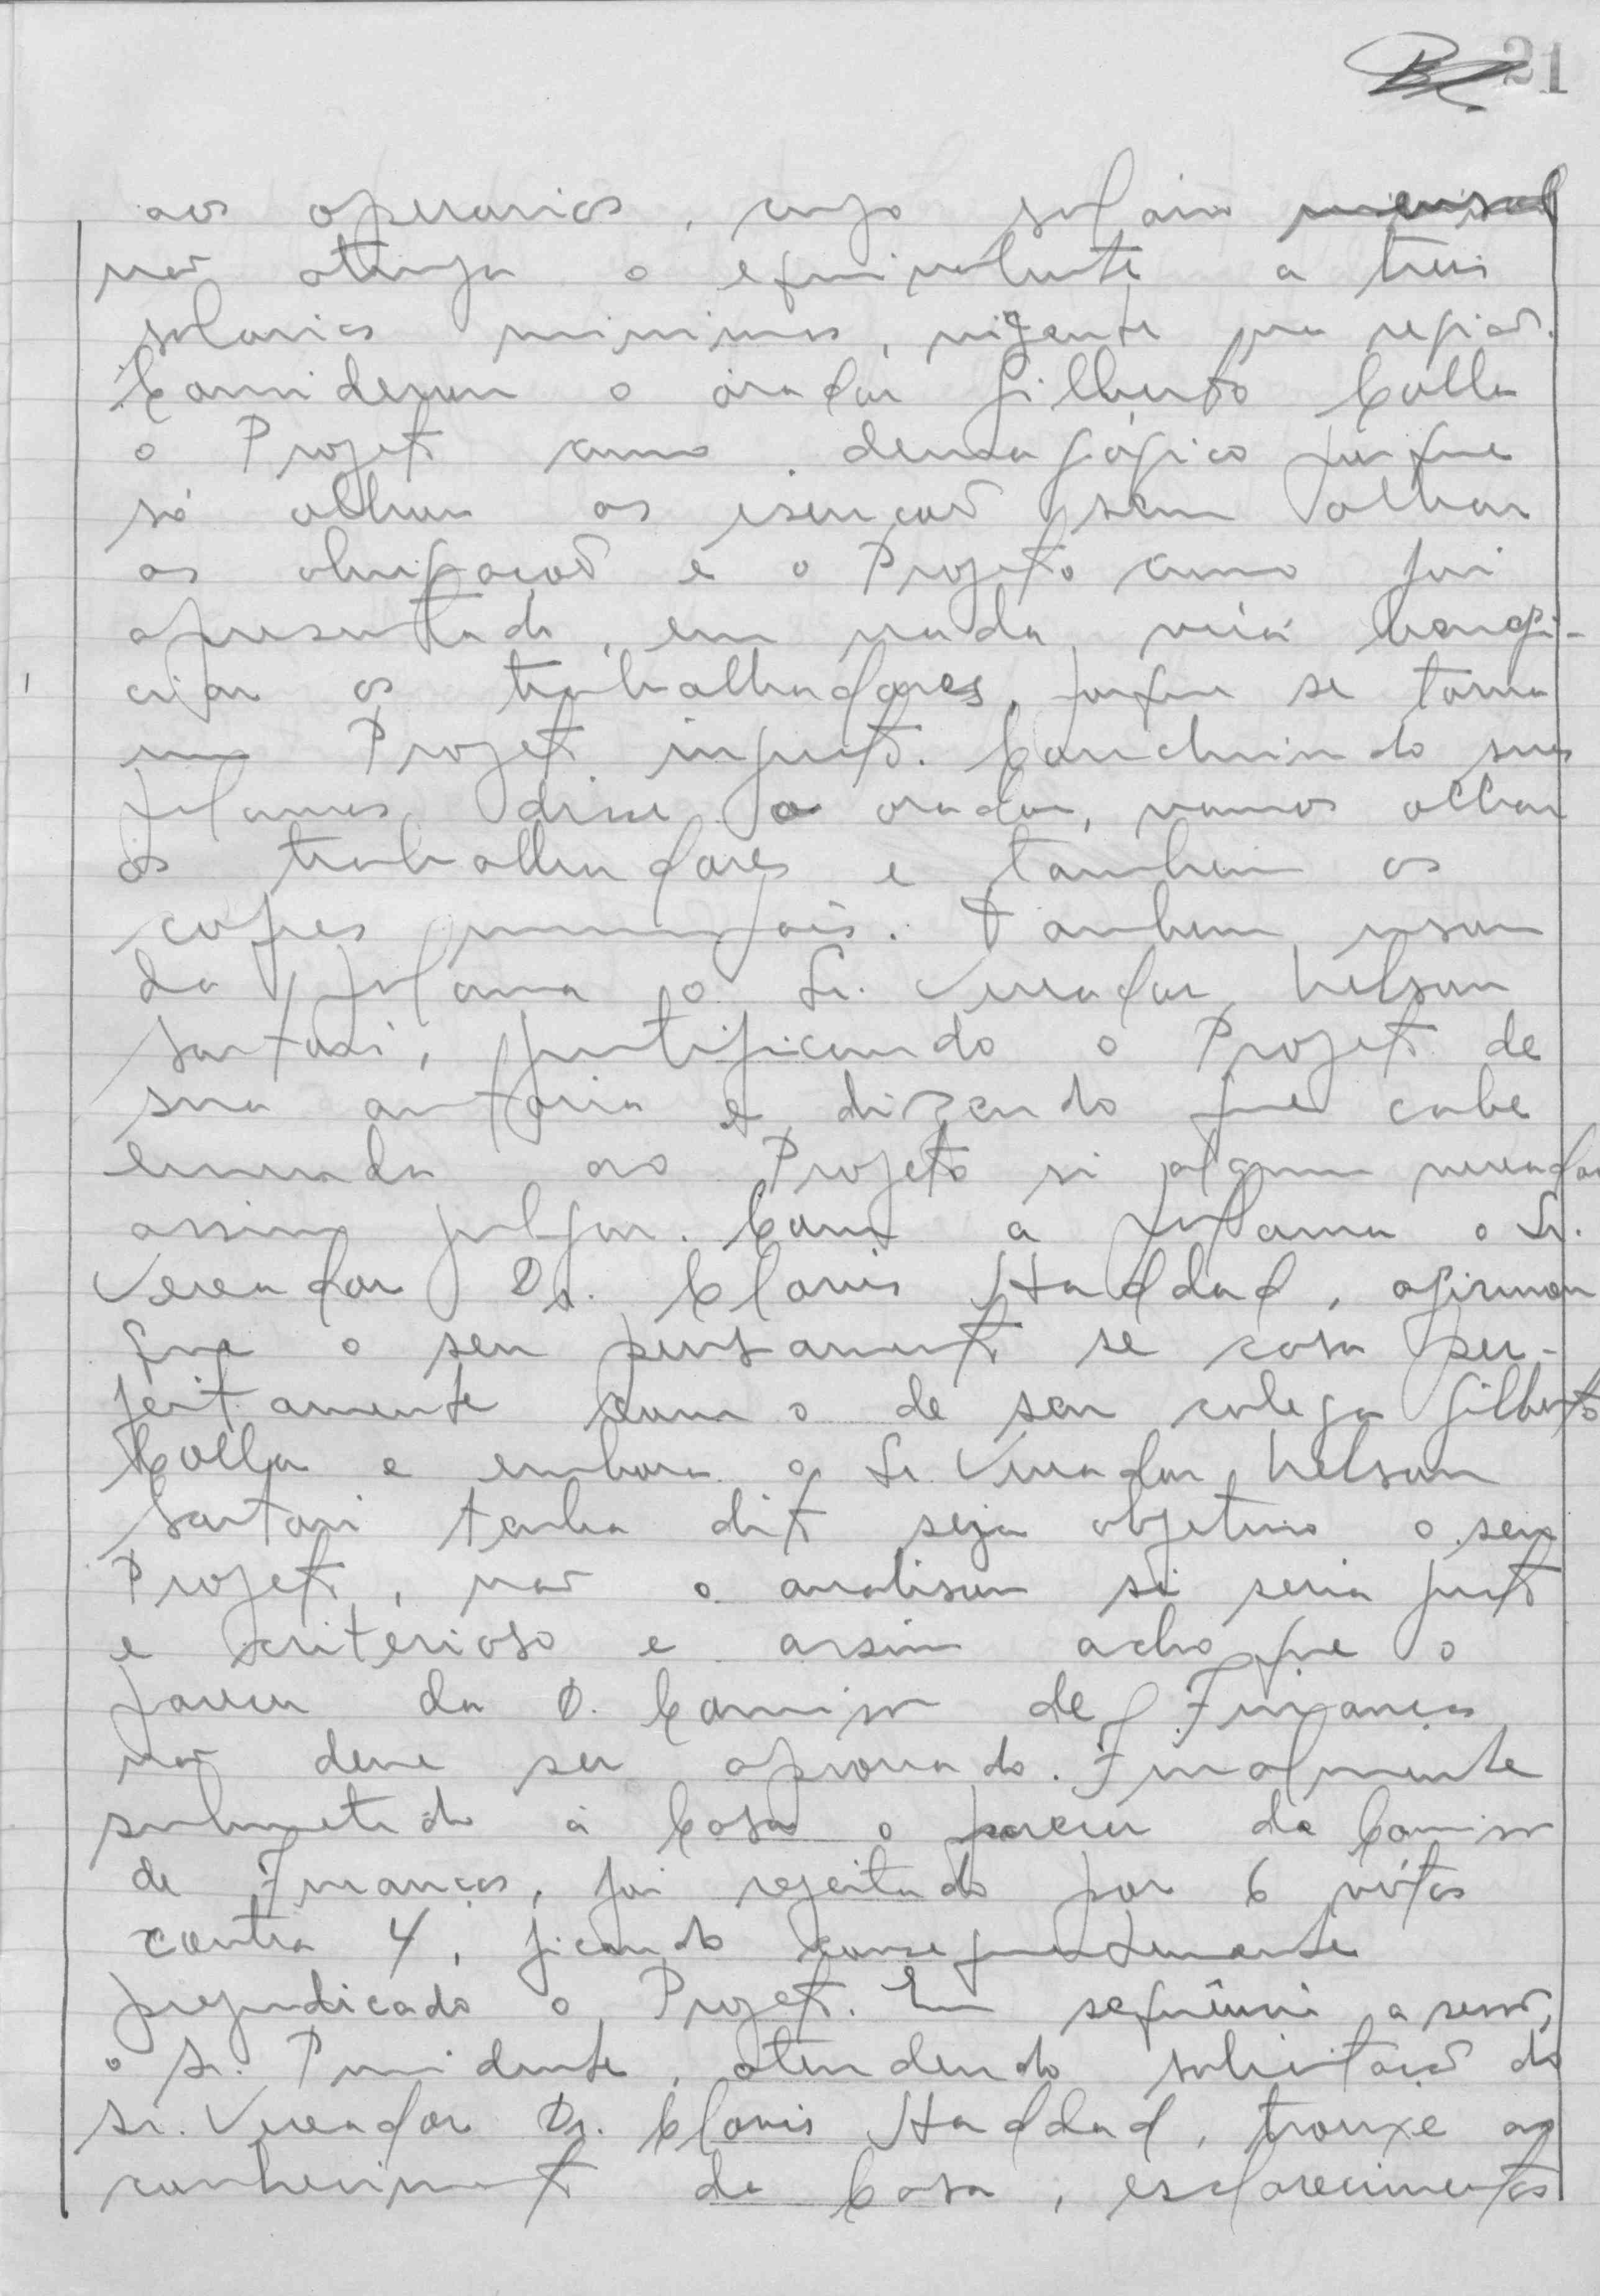 21
aos operarios, cujo salario mensal
não atinja o equivalente a treis
salarios minimos, vigente na região.
Considerou o orador Gilberto Colla
o Projeto como demagógico porque
só olhou as isenções sem olhar
as obrigações e o Projeto como foi
apresentado, em nada virá benefi-
ciar os trabalhadores, porque se torna
um Projeto injusto. Concluindo suas
palavras disse o orador, vamos olhar
os trabalhadores e tambem os
cofres municipais. Tambem usou
da palavra o Sr. Vereador Nelson
Sartori, justificando o Projeto de
sua autoria e dizendo que cabe
emenda ao Projeto si algum vereador
assim julgar. Com a palavra o Sr.
Vereador Dr. Clovis Haddad, afirmou
que o seu pensamento se casa per-
feitamente com o de seu colega Gilberto
Colla e embora o Sr. Vereador Nelson
Sartori tenha dito seja objetivo o seu
Projeto, não o analisou si seria justo
e criterioso e assim acho que o
parecer da D. Comissão de Finanças
não deve ser aprovado. Finalmente
submetido à Casa o parecer da Comissão
de Finanças, foi rejeitado por 6 vótos
contra 4, ficando consequentemente
prejudicado o Projeto. Em sequência a sessão,
o Sr. Presidente, atendendo solicitação do
Sr. Vereador Dr. Clovis Haddad, trouxe ao
conhecimento da Casa, esclarecimentos